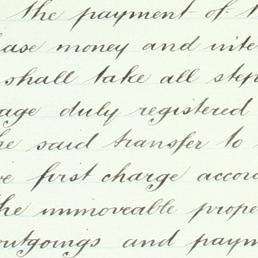 the payment of
money and inte
shall take all step
duly registered
said transfer to
first charge accor
the immoveable prope
outgoings and paym